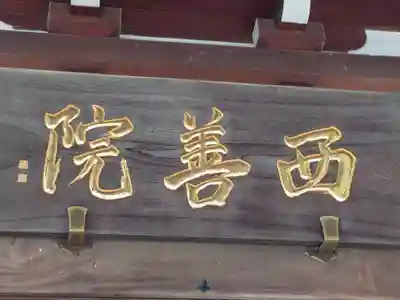 西善院